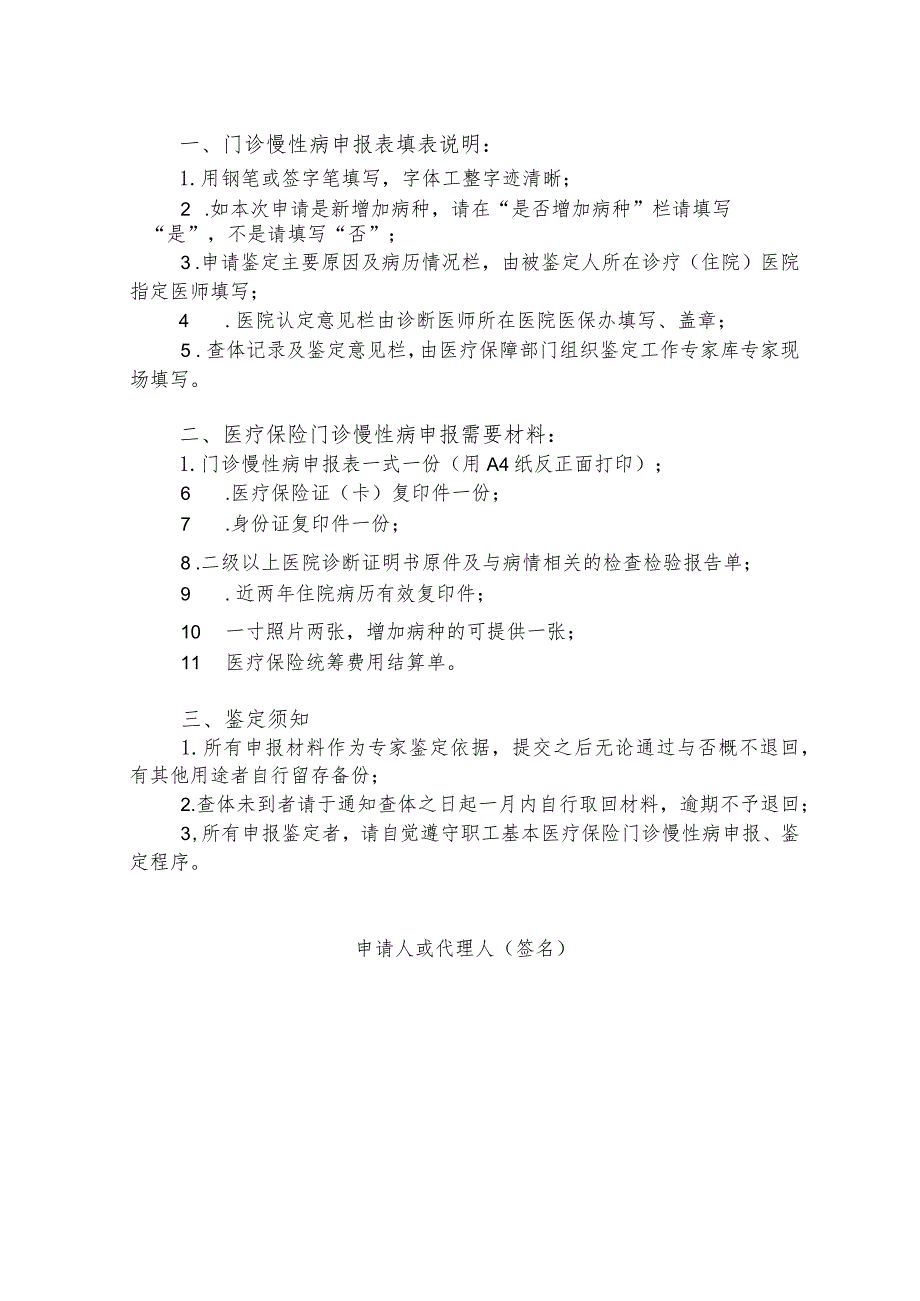 一、门诊慢性病申报表填表说明：
1.用钢笔或签字笔填写，字体工整字迹清晰；
2 .如本次申请是新增加病种，请在“是否增加病种”栏请填写
“是”，不是请填写“否”；
3.申请鉴定主要原因及病历情况栏，由被鉴定人所在诊疗（住院）医院
指定医师填写；
4 .医院认定意见栏由诊断医师所在医院医保办填写、盖章；
5.查体记录及鉴定意见栏，由医疗保障部门组织鉴定工作专家库专家现
场填写。
二、医疗保险门诊慢性病申报需要材料：
1.门诊慢性病申报表一式一份（用A4纸反正面打印）；
6 .医疗保险证（卡）复印件一份；
7 .身份证复印件一份；
8.二级以上医院诊断证明书原件及与病情相关的检查检验报告单；
9 .近两年住院病历有效复印件；
10 一寸照片两张，增加病种的可提供一张；
11 医疗保险统筹费用结算单。
三、鉴定须知
1.所有申报材料作为专家鉴定依据，提交之后无论通过与否概不退回，
有其他用途者自行留存备份；
2.查体未到者请于通知查体之日起一月内自行取回材料，逾期不予退回；
3,所有申报鉴定者，请自觉遵守职工基本医疗保险门诊慢性病申报、鉴
定程序。
申请人或代理人（签名）